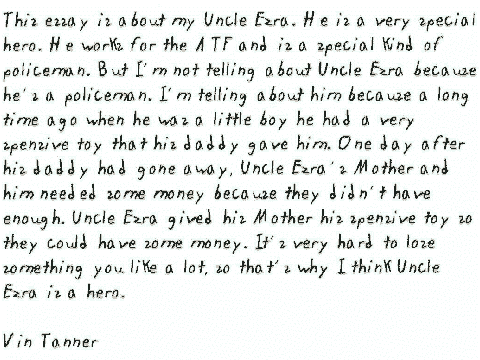 This essay is about my Uncle Ezra. He is a very special
hero. He works for the ATF and is a special kind of
policeman. But I'm not telling about Uncle Ezra because
he's a policeman. I'm telling about him because a long
time ago when he was a little boy he had a very
spensive toy that his daddy gave him. One day after
his daddy had gone away, Uncle Ezra's Mother and
him needed some money because they didn't have
enough. Uncle Ezra gived his Mother his spensive toy so
they could have some money. It's very hard to lose
something you like a lot, so that's why I think Uncle
Ezra is a hero.
Vin Tanner